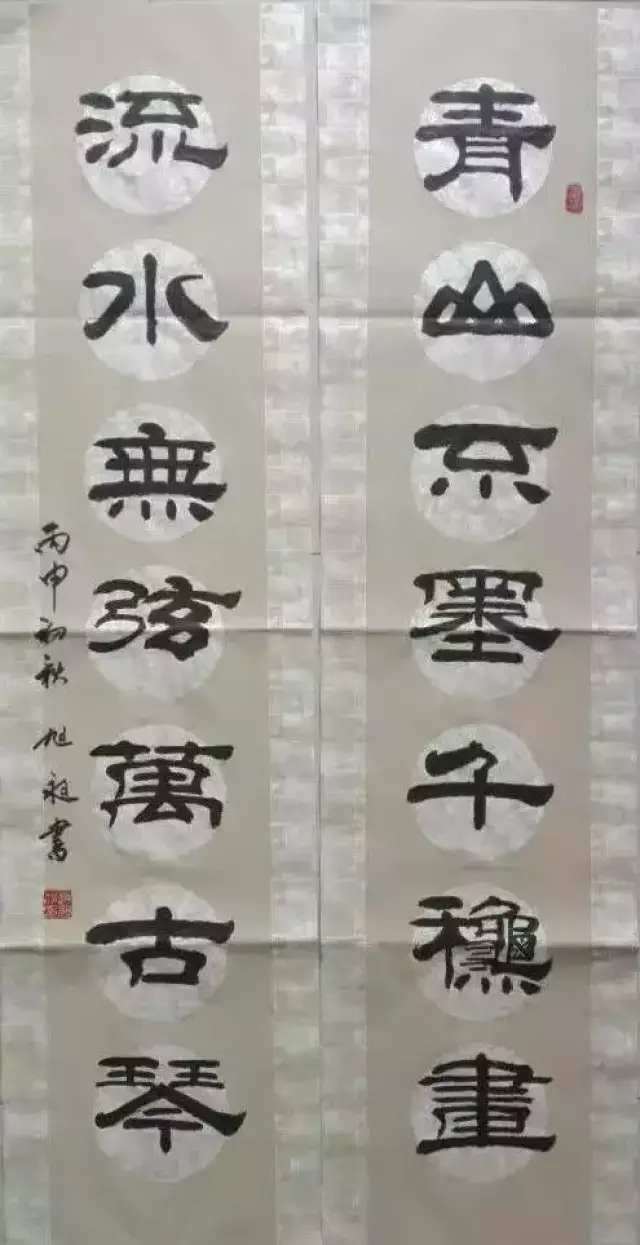 青山不墨千龝畫
流水無弦萬古琴
丙申初秋 旭昶書